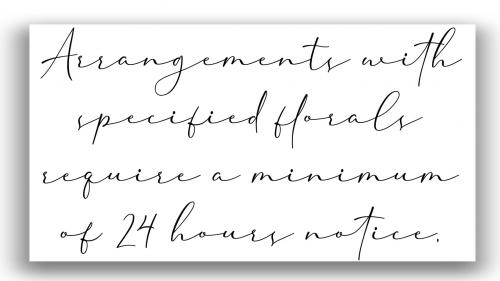 Arrangements with
specified florals
require a minimum
of 24 hours notice.